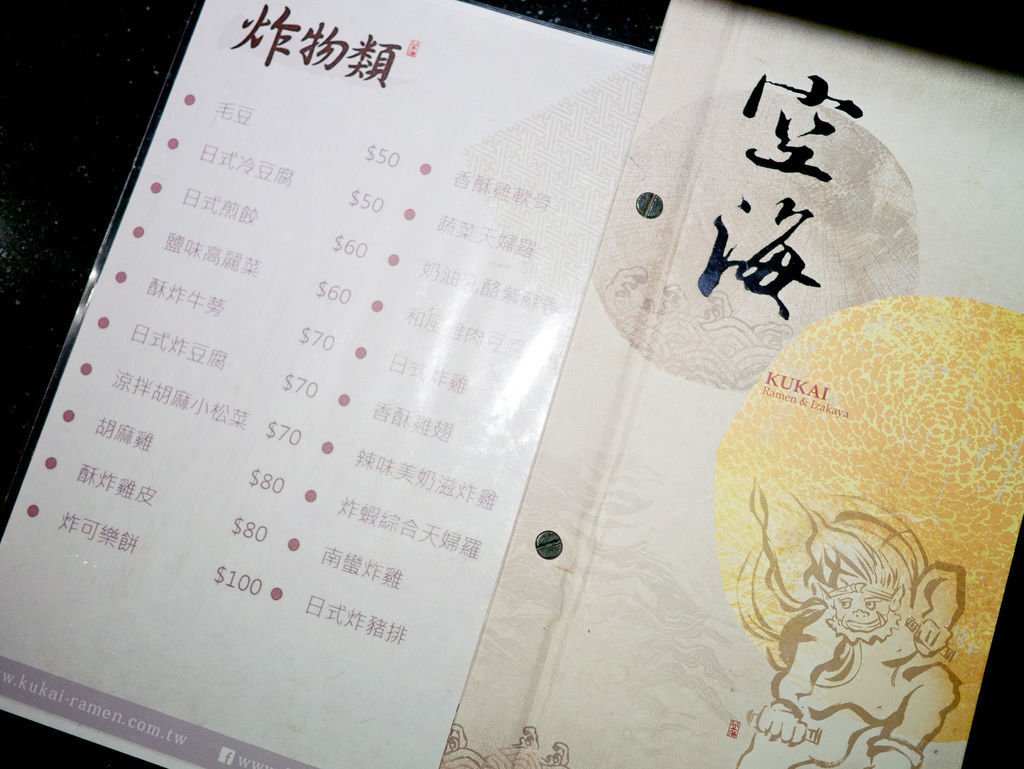 炸物類
毛豆 $50
日式冷豆腐 $50
日式煎餃 $60
鹽味高麗菜 $60
酥炸牛蒡 $70
日式炸豆腐 $70
涼拌胡麻小松菜 $70
胡麻雞 $80
酥炸雞皮 $80
炸可樂餅 $100
香酥雞軟骨
蔬菜天婦羅
奶油乳酪紫蘇卷
和風雞肉豆腐
日式炸雞
香酥雞翅
辣味美奶滋炸雞
炸蝦綜合天婦羅
南蠻炸雞
日式炸豬排
w.kukai-ramen.com.tw
f www
空海
KUKAI
Ramen & Izakaya